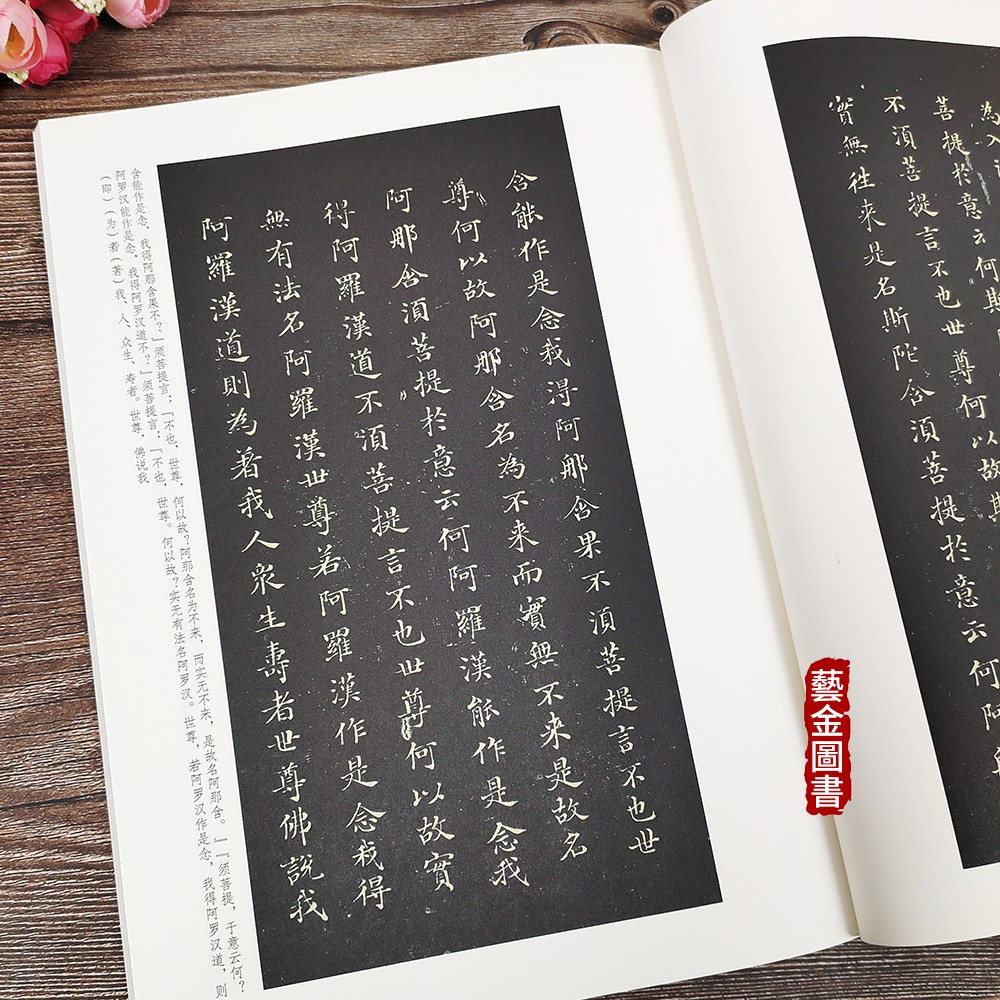 為入
菩提於意云何斯
不湏菩提言不也世尊何以故斯
實無往来是名斯陀含湏菩提於意云何阿那
含能作是念我得阿那含果不湏菩提言不也世
尊何以故阿那含名為不来而實無不来是故名
阿那含湏菩提於意云何阿羅漢能作是念我
得阿羅漢道不湏菩提言不也世尊何以故實
無有法名阿羅漢世尊若阿羅漢作是念我得
阿羅漢道則為著我人衆生壽者世尊佛說我
含能作是念，我得阿那含果不？』须菩提言：『不也，世尊，何以故？阿那含名为不来，而实无不来，是故名阿那含。』『须菩提，于意云何？
阿罗汉能作是念，我得阿罗汉道不？』须菩提言：『不也，世尊。何以故？实无有法名阿罗汉。世尊，若阿罗汉作是念，我得阿罗汉道，则
（即）（为）着（著）我、人、众生、寿者。世尊，佛说我
藝金圖書